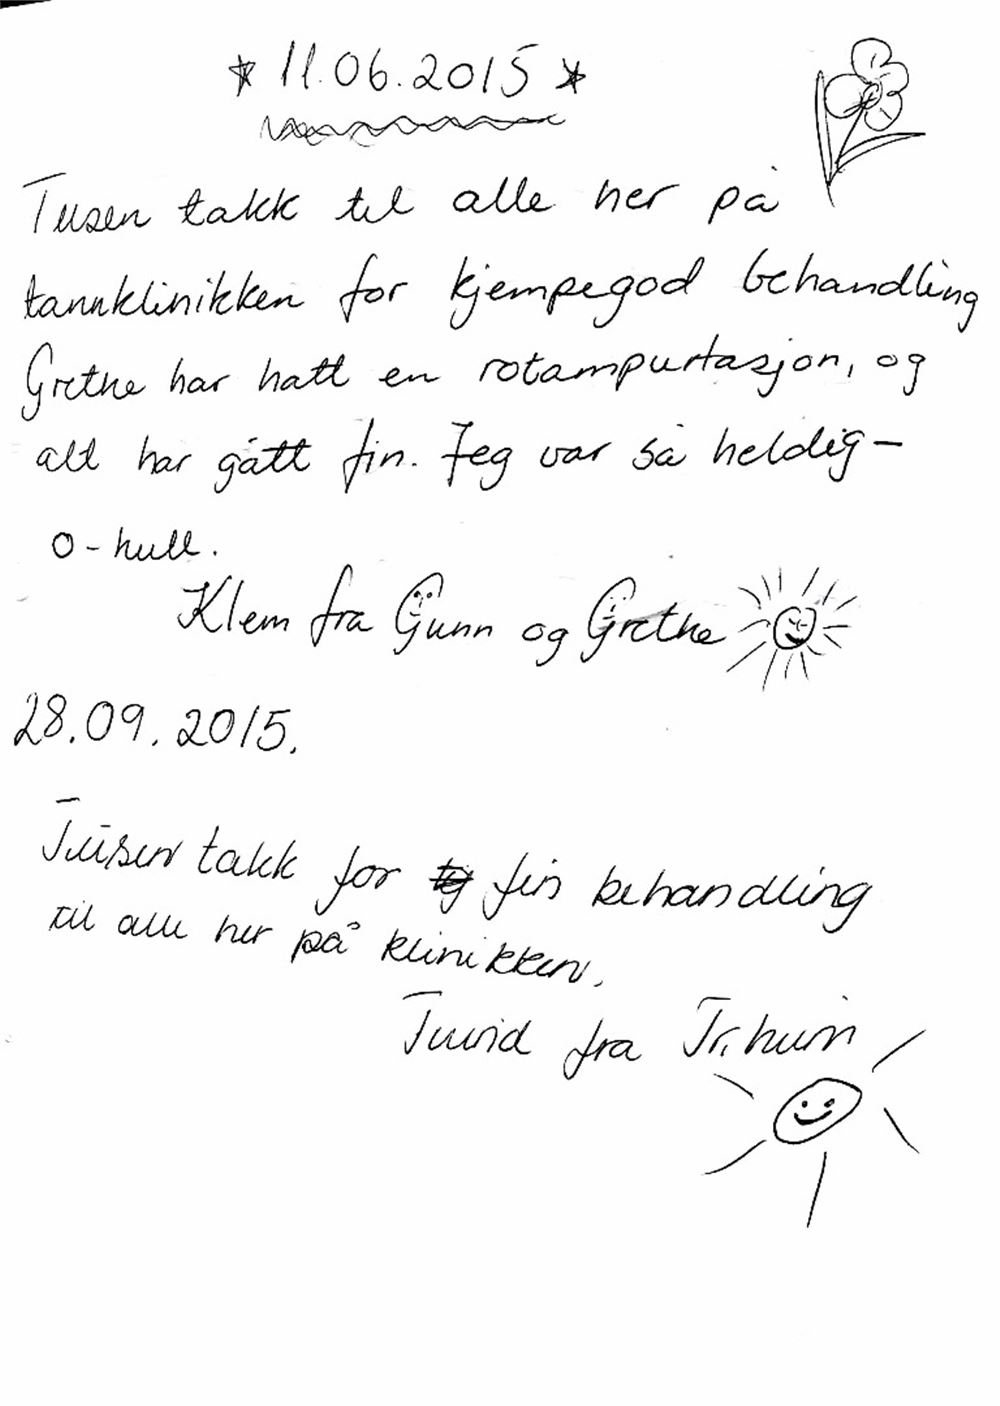 * 11.06.2015 *
Tusen takk til alle her på
tannklinikken for kjempegod behandling
Grethe har hatt en rotampurtasjon, og
alt har gått fin. Jeg var så heldig -
0 - hull.
Klem fra Gunn og Grethe
28.09.2015.
Tusen takk for fin behandling
til alle her på klinikken.
fra